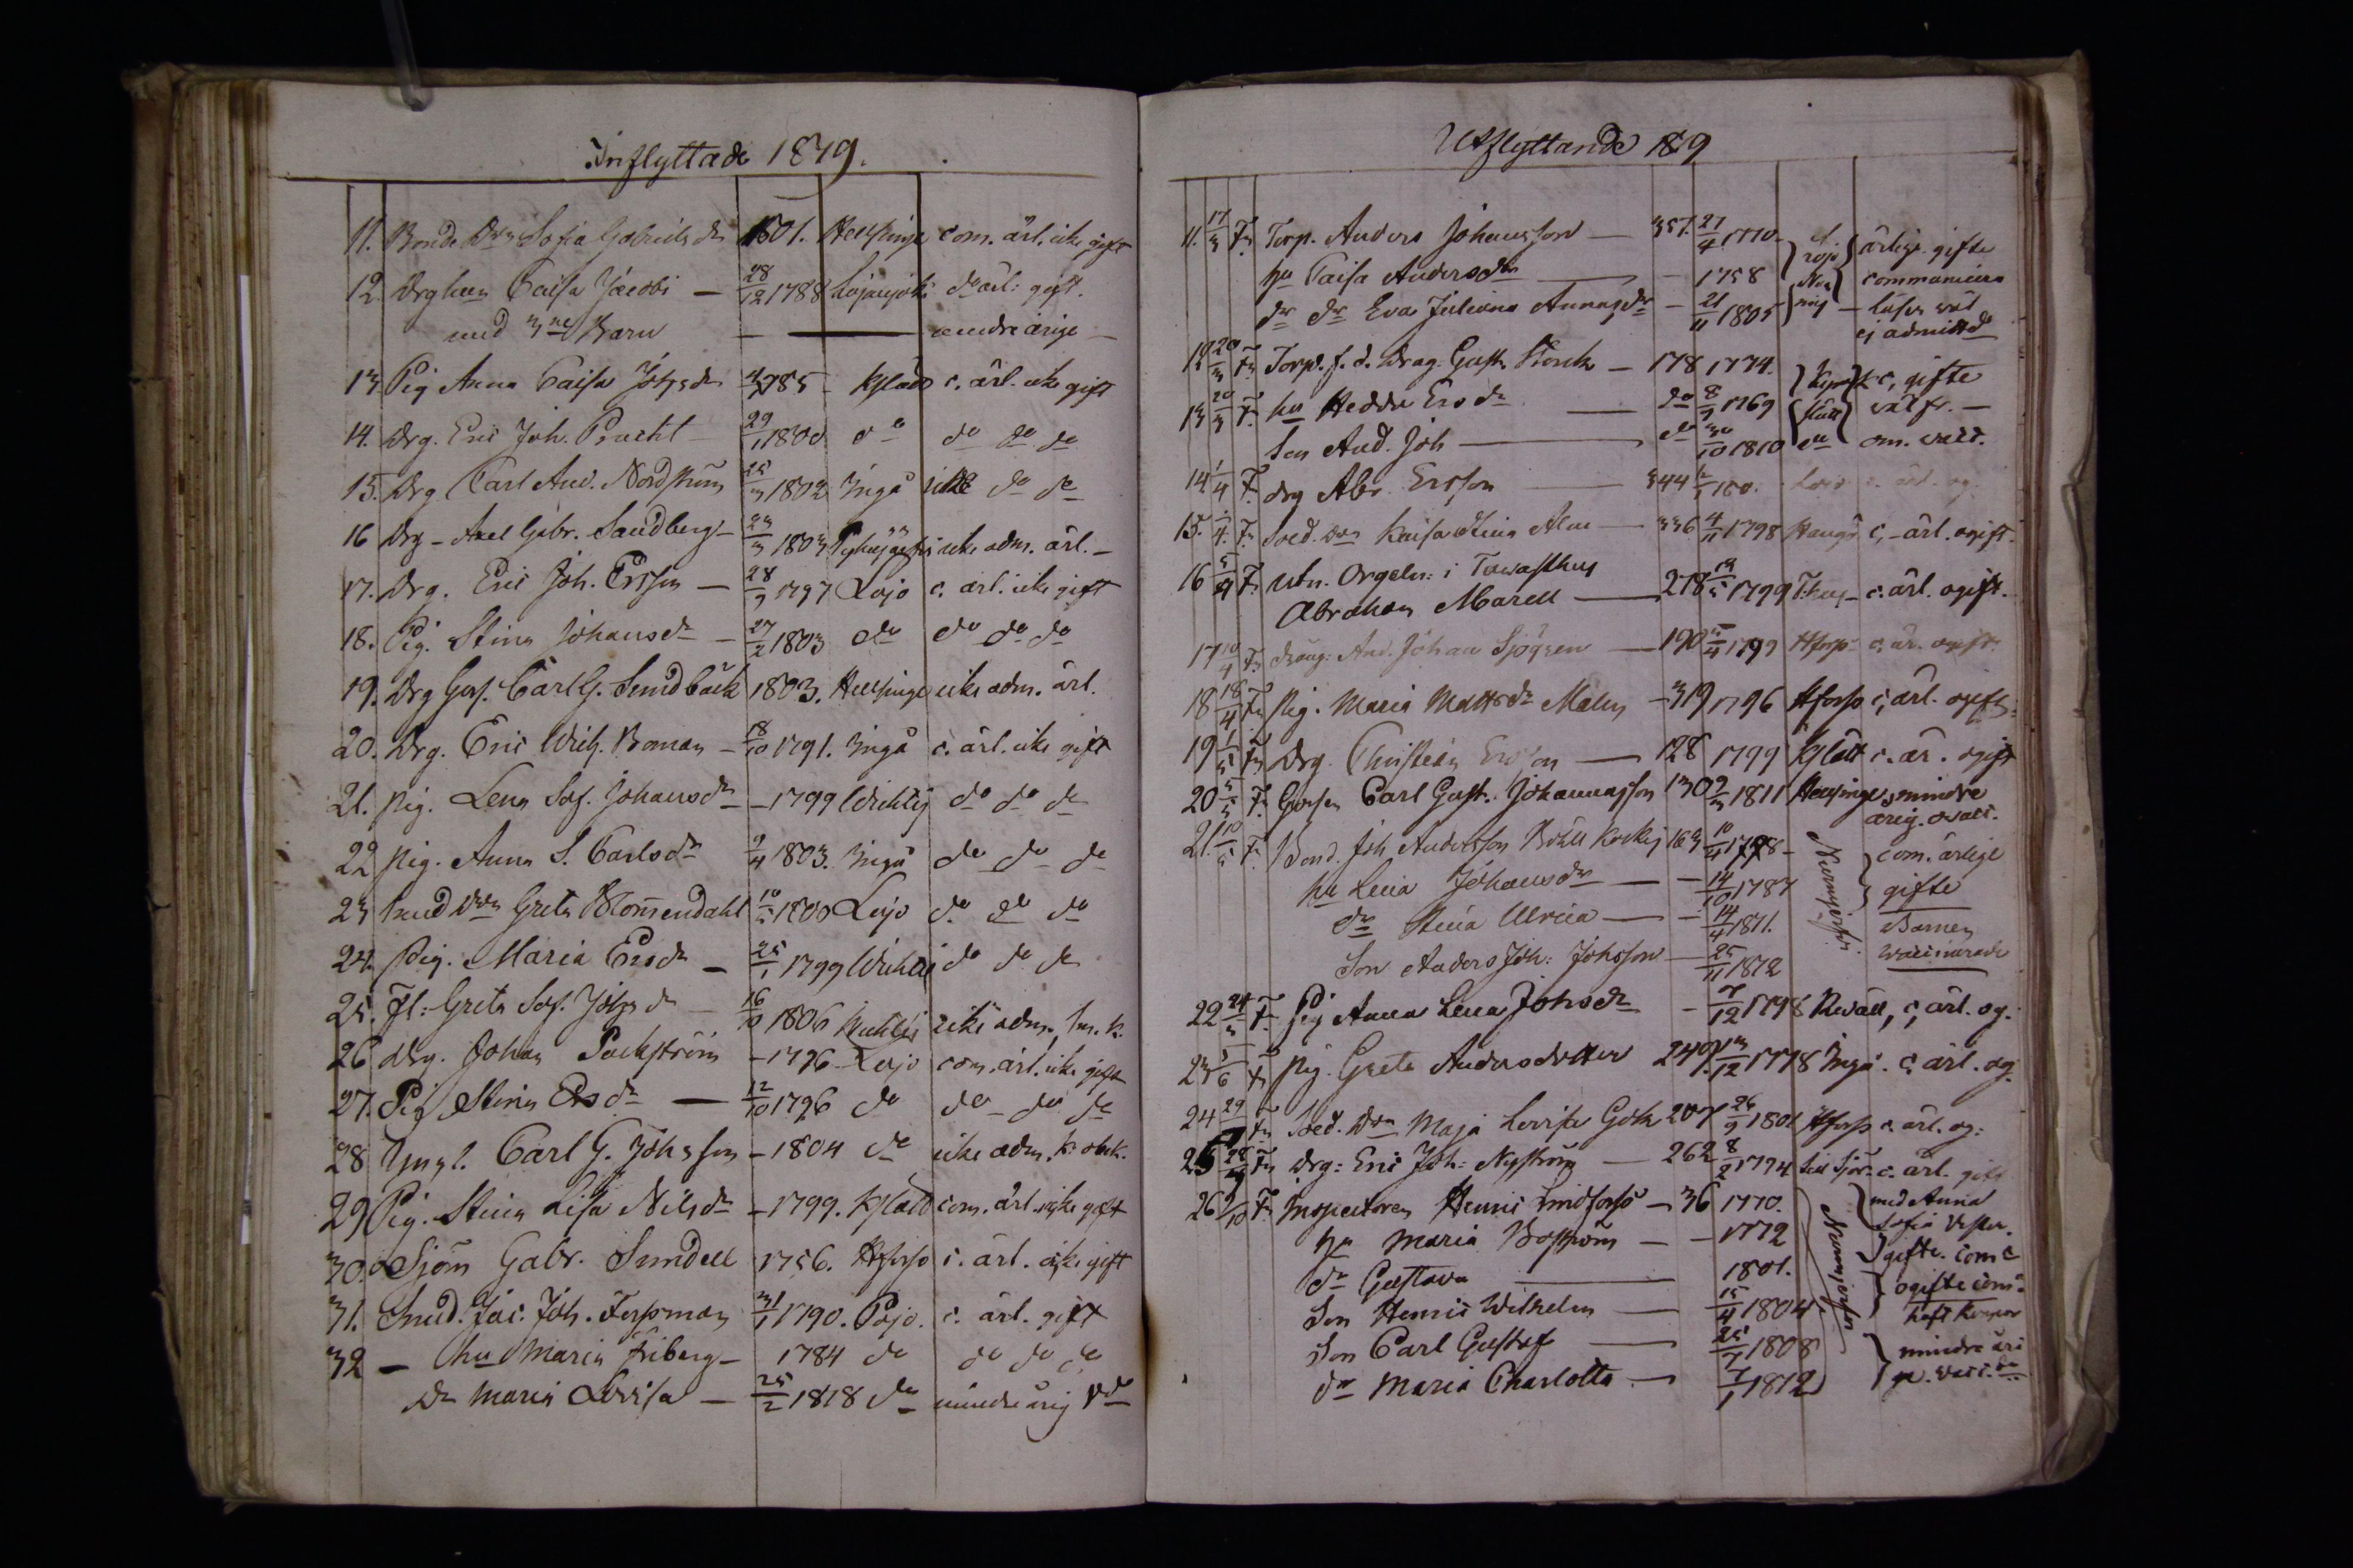 Inflyttade 1819.
11. Bonde Dr Sofia Gabriels dr 1801. Helsinge com. ärl. icke gift
12. Drghun Caisa Jacobi — 28/12 1788 Lojanjoki do ärl: gift.
med 3ne Barn — mindreårige —
13. Pig Anna Caisa Johs dr 1785 – Kslätt c. ärl. icke gift
14. Drg. Eric Joh. Pracht 29/1 1800 do do do do
15. Drg. Carl And. Nordström 25/3 1802 Ingå icke do do
16 Drg – Axel Gabr. Sandberg – 23/3 1803 icke adm. ärl. –
17. Drg. Eric Joh. Ersson — 28/9 1797 Lojo c. ärl. icke gift
18. Pig. Stina Johansdr – 27/2 1803 do do do do
19. Drg Gos. Carl G. Sundbäck 1803. Helsinge icke adm. ärl.
20. Drg. Eric Wilh. Boman – 18/10 1791. Ingå c. ärl. icke gift
21. Pig. Lena Sof. Johansdr – 1799 Wichtis do do do
22 Pig. Anna S. Carlsdr 9/4 1803. Ingå do do do
23 Greta Blomendahl 10/5 1800 Lojo do do do
24. Pig. Maria Ersdr – 25/1 1799 Wichtis do do do
25. Fl: Greta Sof. Johs dr 16/10 1806 Wichtis icke adm.
26 Drg. Johan Packström – 1796 Lojo com. ärl. icke gift
27. Pig Stina Ersdr — 12/10 1796 do do do do
28 Yngl. Carl G. Johsson – 1804 do icke adm.
29 Pig. Stina Lisa Nilsdr – 1799. Kslätt com. ärl. icke gift
30. Sjöm Gabr. Sundell 1756. Hfors c. ärl. icke gift
31. Smed. Jac. Joh. Forsman 31/1 1790. Pojo. c. ärl. gift
32 – hu Maria Friberg – 1784 do do do do
Dr Maria Lovisa — 25/2 1818 do mindreårig
Utflyttande 1819
11. 17/3 Torp. Anders Johansson — 357. 27/4 1770 Lojo ärlige gifte
hu Caisa Andersdr — 1758 communicera
dr Eva Juliana – 21/11 1805 – läser väl
ej admitt
12 20/3 Torp. f. d. Drag. Gust. Storck – 178 1774. c, gifte
13 20/3 hu Hedda Ersdr — do 8/9 1769
Son And. Joh — do 30/10 1810 om. vacc.
14 1/4 drg Abr. Ersson — 344
15. Sold. Kaisa Stina Alm — 336 4/11 1798 c, – ärl. ogift.
16 5/4 Utn. Orgeln: i Tawasthus
Abraham Marell — 278 1799 c. ärl. ogift.
17 10/4 dräng: And. Johan Sjögren — 190 1799 Hfors c. är. ogift.
18 18/4 Pig. Maria Mattsdr Malm – 319 1796 Hfors c, ärl. ogift
19 Drg. Christian Ersson — 128 1799 Kslätt c. är. ogift
20 Gossen Carl Gust. Johannsson 130 9/3 1811 Helsinge, mindre
årig. vacc.
21. 10/5 Bond. Joh Andersson 163 10/11 1778 – com. ärlige
hu Lena Johansdr — 14/10 1787 gifte
dr Stina Ulrica — 14/4 1811. Barnen
Son Anders Joh: Johsson — 25/11 1812 Nurmijerfvi. vaccinerade
22 24/5 Pig Anna Lena Johsdr – 7/12 1798 Revall, c, ärl. og.
23 Pig. Greta Andersdotter 240 1778 Ingå. c. ärl. og.
24 29 Maja Lovisa Gök 207 26/9 1801 Hfors c. ärl. og:
25 28/9 Drg: Eric Joh: Nyström — 262 8/2 1794 c. ärl. gift
26 Inspectoren Henric Lindfors — 36 1770. med Anna
hu Maria Boström — 1772 Sofia
gifte. com
dr Gustava — 1801. ogifte com
Son Henric Wilhelm — 15/4 1804 Nurmijerfvi haft koppor
Son Carl Gustaf — 25/7 1808 mindre åri
dr Maria Charlotta — 7/1 1812 ge. vacc.